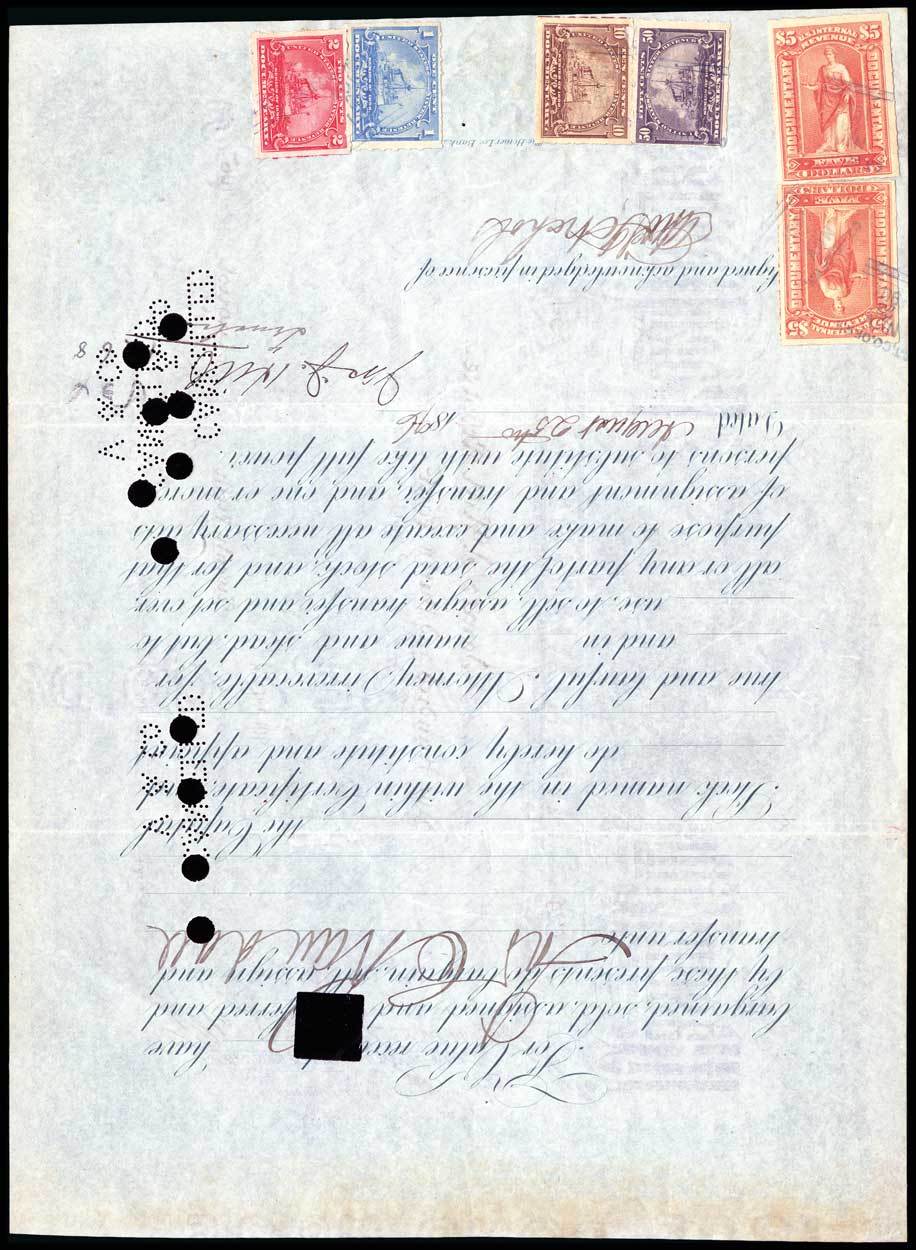 For Value received have
bargained, sold, assigned and transferred and
by these presents do bargain, sell, assign and
transfer unto
the Capital
Stock named in the within Certificate, and
do hereby constitute and appoint
true and lawful Attorney, Irrevocable, for
and in name and stead, but to
use, to sell, assign, transfer, and set over,
all or any part of the said stock, and for that
purpose to make and execute all necessary acts
of assignment and transfer, and one or more
persons to substitute with like full power.
Dated August 25th 1896
Signed and acknowledged in presence of
CANCELLED
$5 U.S. INTERNAL REVENUE $5
DOCUMENTARY DOCUMENTARY
FIVE DOLLARS
$5 U.S. INTERNAL REVENUE $5
DOCUMENTARY DOCUMENTARY
FIVE DOLLARS
DOCUMENTARY
50 FIFTY CENTS
DOCUMENTARY
10 TEN CENTS 10
DOCUMENTARY
1 ONE CENT 1
DOCUMENTARY
2 TWO CENTS 2